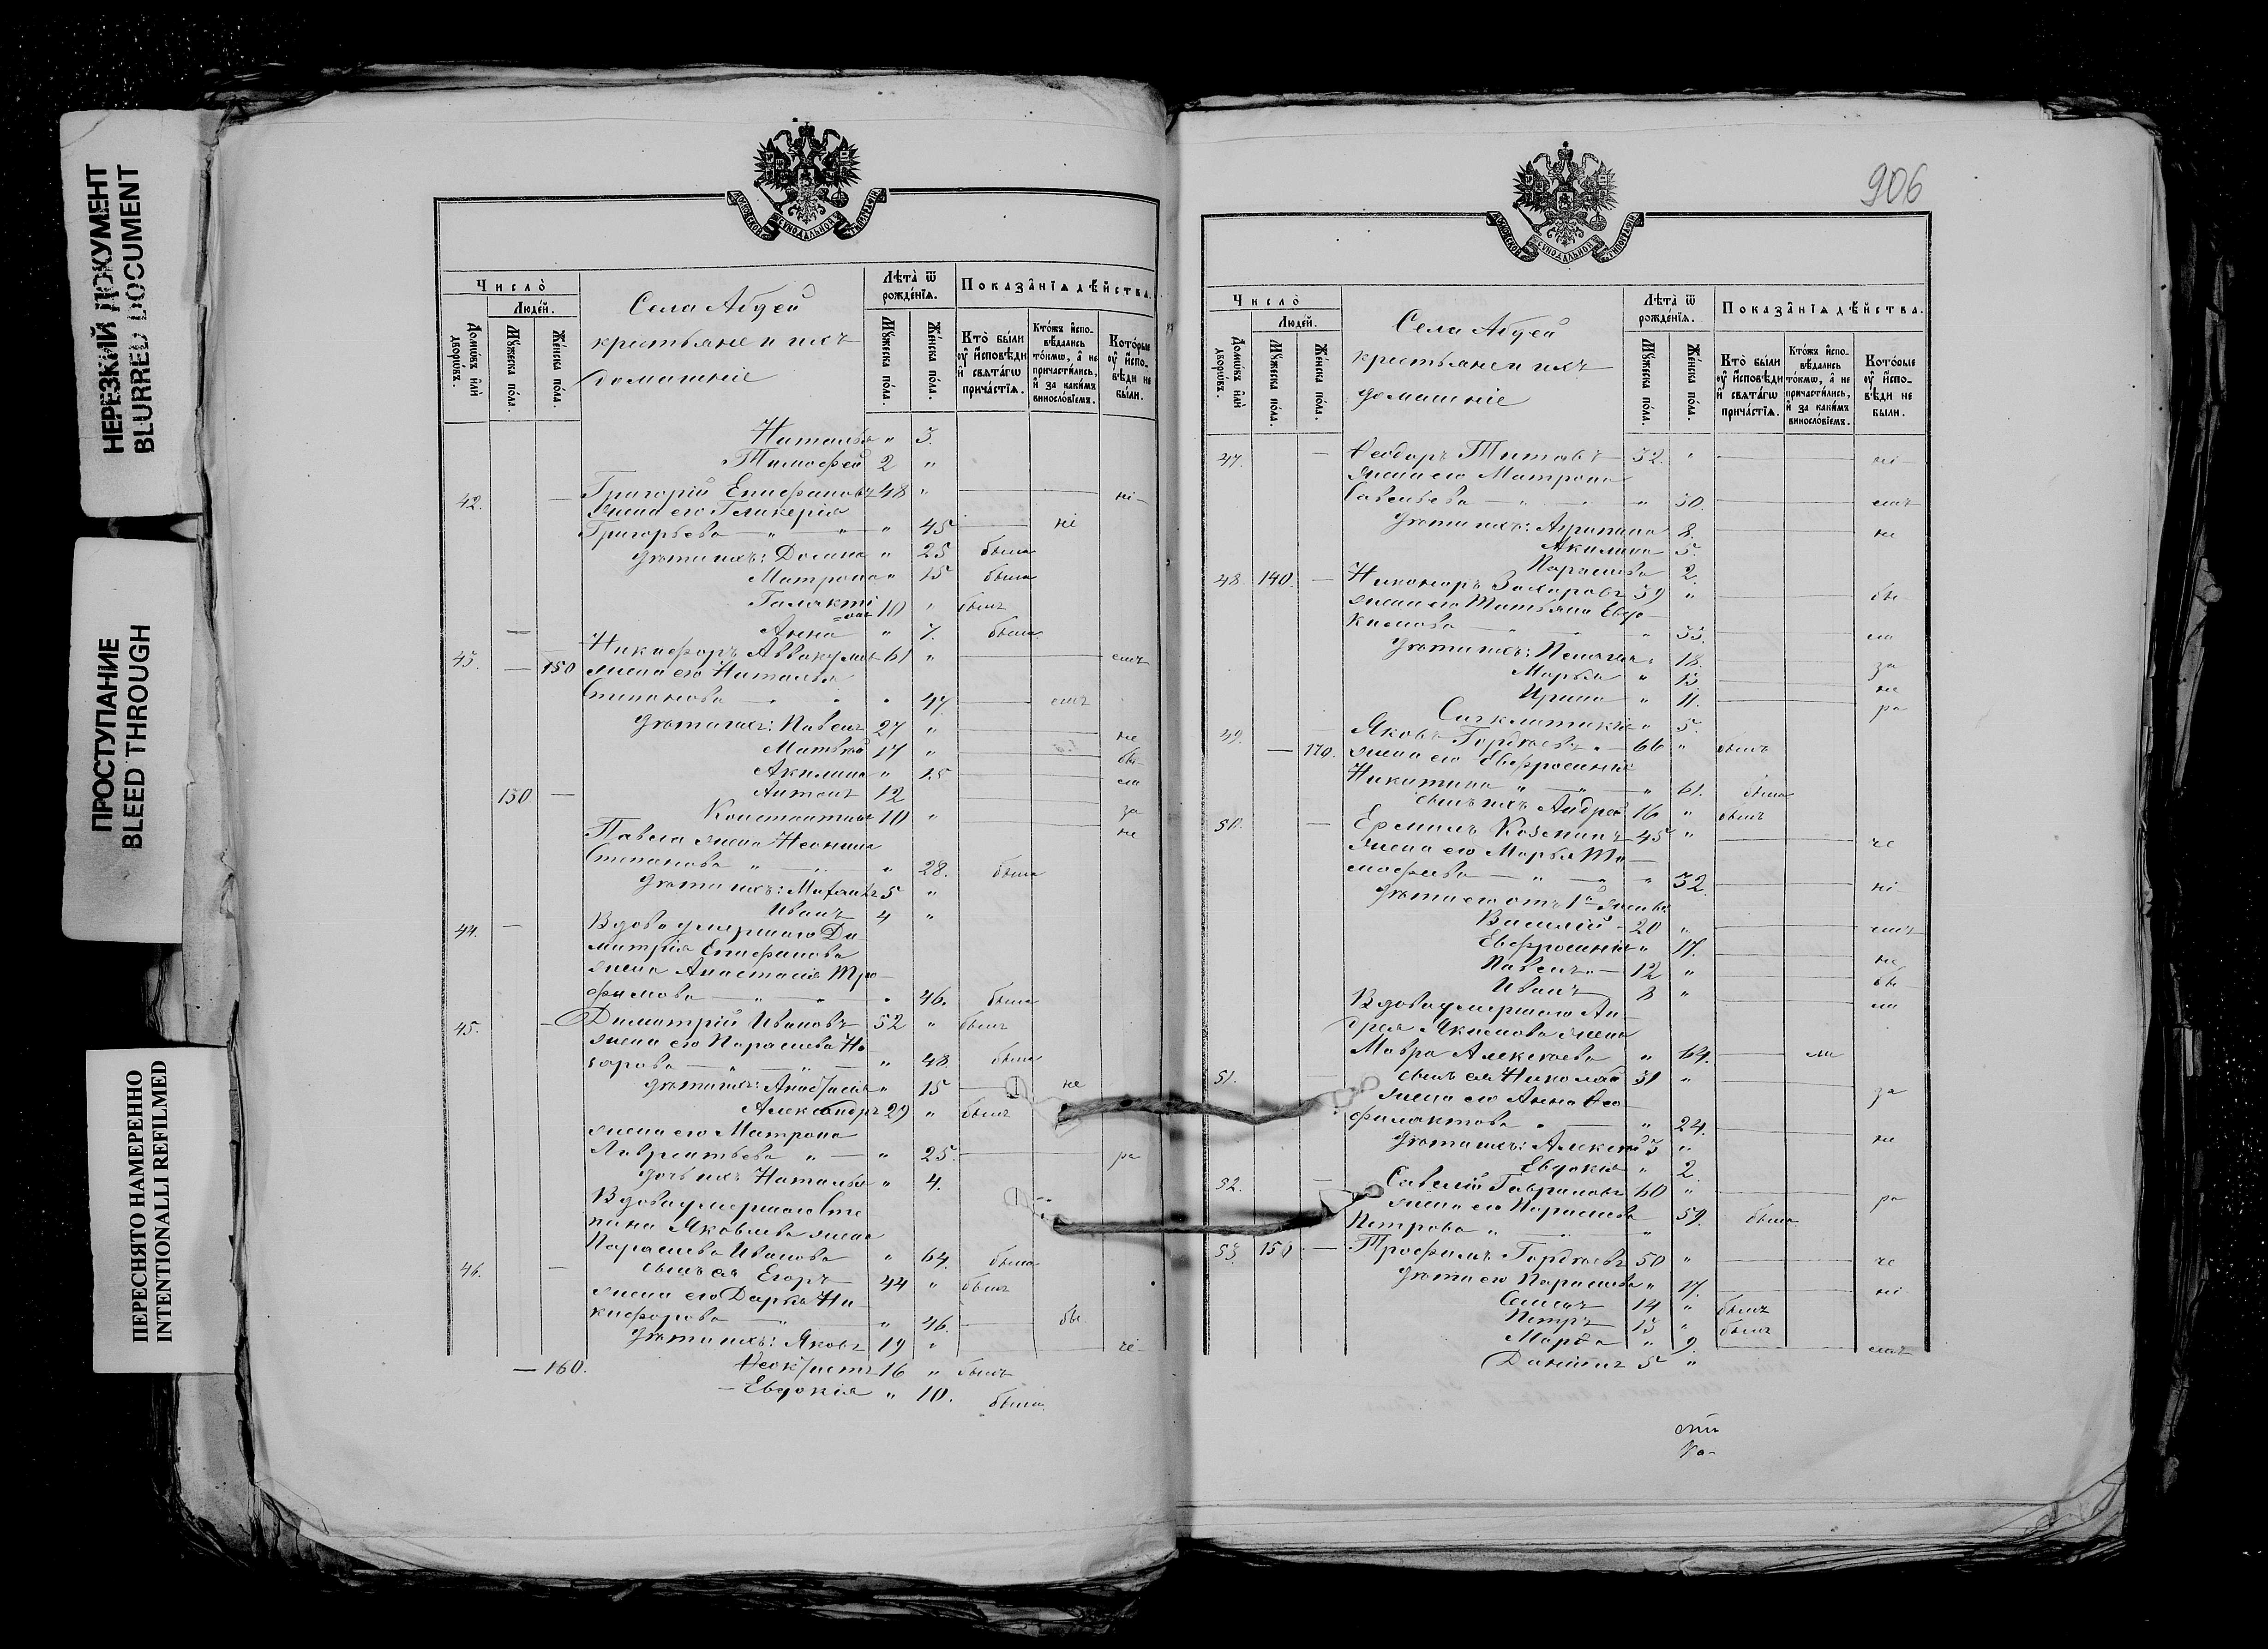 НЕРЕЗКИЙ ДОКУМЕНТ
BLURRED DOCUMENT
ПРОСТУПАНИЕ
BLEED THROUGH
ПЕРЕСНЯТО НАМЕРЕННО
INTENTIONALLI REFILMED
МОСКОВСКОЙ СѴНОДАЛЬНОЙ ТИПОГРАФІИ
Число̀
Люде́й.
Домѡ́въ и҆лѝ дворѡ́въ.
Мꙋ́жеска по́ла.
Же́нска по́ла.
Села Абдей
крестьяне и ихъ
домашніе
Лѣта̀ ѿ рожде́нїѧ.
Мꙋ́жеска по́ла.
Же́нска по́ла.
Показа̑нїѧ дѣ́йства.
Кто̀ бы́ли ᲂу҆ и҆сповѣ́ди и҆ свѧта́гѡ прича́стїѧ.
Кто́жъ и҆спо-вѣ́дались то́кмѡ, а҆ не причасти́лись, и҆ за каки́мъ винословїемъ.
Кото́рые ᲂу҆ и҆спо-вѣ́ди не бы́ли.
Наталья " 3.
Тимофей 2 "
42. — Григорій Епифановъ 48 " — — ні-
жена его Гликерія
Григорьева — " — " 45 — ні
дѣти ихъ: " 25 была
Матрона " 15 была
Галакті
онъ 10 " былъ
— Анна " 7. была
43. — 150 Никифоръ Аввакумовъ 61 " — — емъ
жена его Наталья
Степанова " 47. — емъ
дѣти ихъ: Павелъ 27 " — не
Матвей 17 " — бы
Акилина " 15 — ла
130 — Антонъ 12 — за
Константинъ 10 " — не
Павла жена Неонила
Степанова " — " 28. была
дѣти ихъ: Михаилъ 5 "
Иванъ 4 "
44. — Вдова умершаго Ди-
митрія Епифанова
жена Анастасія Тро-
фимова — " — " 46. была
45. — Димитрій Ивановъ 52 " былъ
жена его Параскева На-
зарова — " — " 48. была
дѣти ихъ: Анастасія " 15 — не
Александръ 29 " былъ
жена его Матрона
Лаврентьева " — " 25. — ра
дочь ихъ Наталья " 4.
Вдова умершаго Сте
пана Яковлева жена
Параскева Иванова " 64. была
46. — сынъ ея Егоръ 44 " былъ
жена его Дарья Ни-
кифорова — " 46. — бы
дѣти ихъ: Яковъ 19 " — не
— 160. Ѳеоктистъ 16 " былъ
— Евдокія " 10. была
906
МОСКОВСКОЙ СѴНОДАЛЬНОЙ ТИПОГРАФІИ
Число̀
Люде́й.
Домѡ́въ и҆лѝ дворѡ́въ.
Мꙋ́жеска по́ла.
Же́нска по́ла.
Села Абдей
крестьяне и ихъ
домашніе
Лѣта̀ ѿ рожде́нїѧ.
Мꙋ́жеска по́ла.
Же́нска по́ла.
Показа̑нїѧ дѣ́йства.
Кто̀ бы́ли ᲂу҆ и҆сповѣ́ди и҆ свѧта́гѡ прича́стїѧ.
Кто́жъ и҆спо-вѣ́дались то́кмѡ, а҆ не причасти́лись, и҆ за каки́мъ винословїемъ.
Кото́рые ᲂу҆ и҆спо-вѣ́ди не бы́ли.
47. — Ѳеодоръ Титовъ — 32. " — — ні-
жена его Матрона
Савельева — " " 30. — — емъ
дѣти ихъ: Агрипина 8. — не
Акилина 5.
Параскева 2.
48. 140. — Никоноръ Захаровъ 39 " — — бы
жена его Татьяна Евдо-
кимова — " " 33. — — ла
дѣти ихъ: Пелагія " 18. — за
Марья " 13 — не
Ирина " 11. — ра
Сигклитикія " 5.
49. — 170. Яковъ Гордѣевъ " — 66 " былъ
жена его Евфросинія
Никитина " — " 61. была
сынъ ихъ Андрей 16 " былъ
50. — Ермилъ Козминъ — 45 " — — че
жена его Марья Ти-
мофеева — " — " 32. — — ні
дѣти его отъ 1й жены:
Василій — 20 " — емъ
Евфросинія " 17. — не
Павелъ " — 12 " — бы
Иванъ 8 " — ла
Вдова умершаго Ан-
дрея Якимова жена
Мавра Алексѣева " 64. — ла
51. — сынъ ея Николай 31 " — — за
жена его Анна Ѳео-
филактова " — " 24. — — не
дѣти ихъ: Алексѣй 3 "
Евдокія " 2.
52. — Савелій Гавриловъ 60 " — — ра
жена его Параскева
Петрова " — " 59. была
53. 150 — Трофимъ Гордѣевъ 50 " — — че
дѣти его Параскева " 17. — ні
Семенъ 14 " былъ
Петръ 13 " былъ
Марѳа " 9. — емъ
Даніилъ 5 "